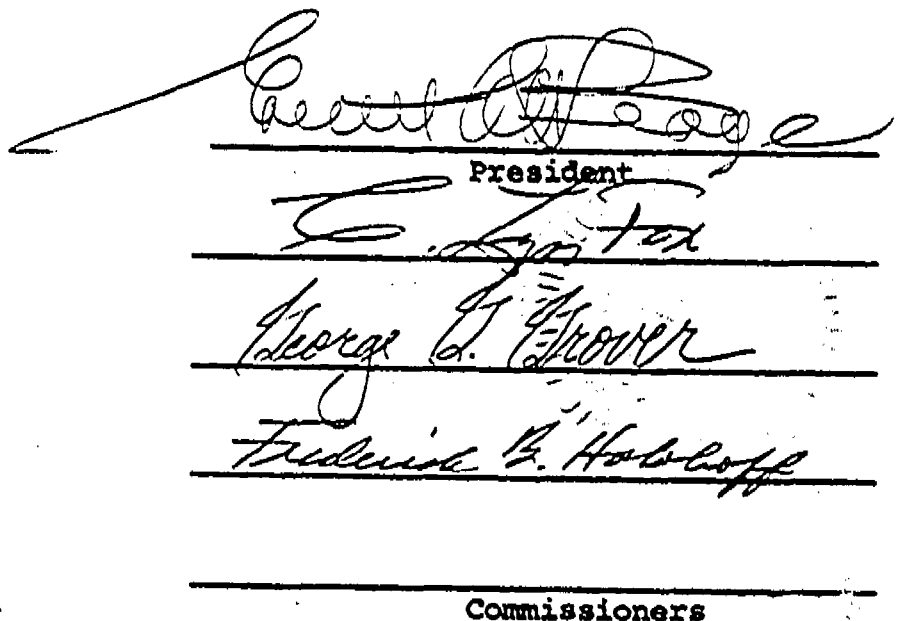 President
C. Lyn Fox
George G. Grover
Frederick B. Holoboff
Commissioners